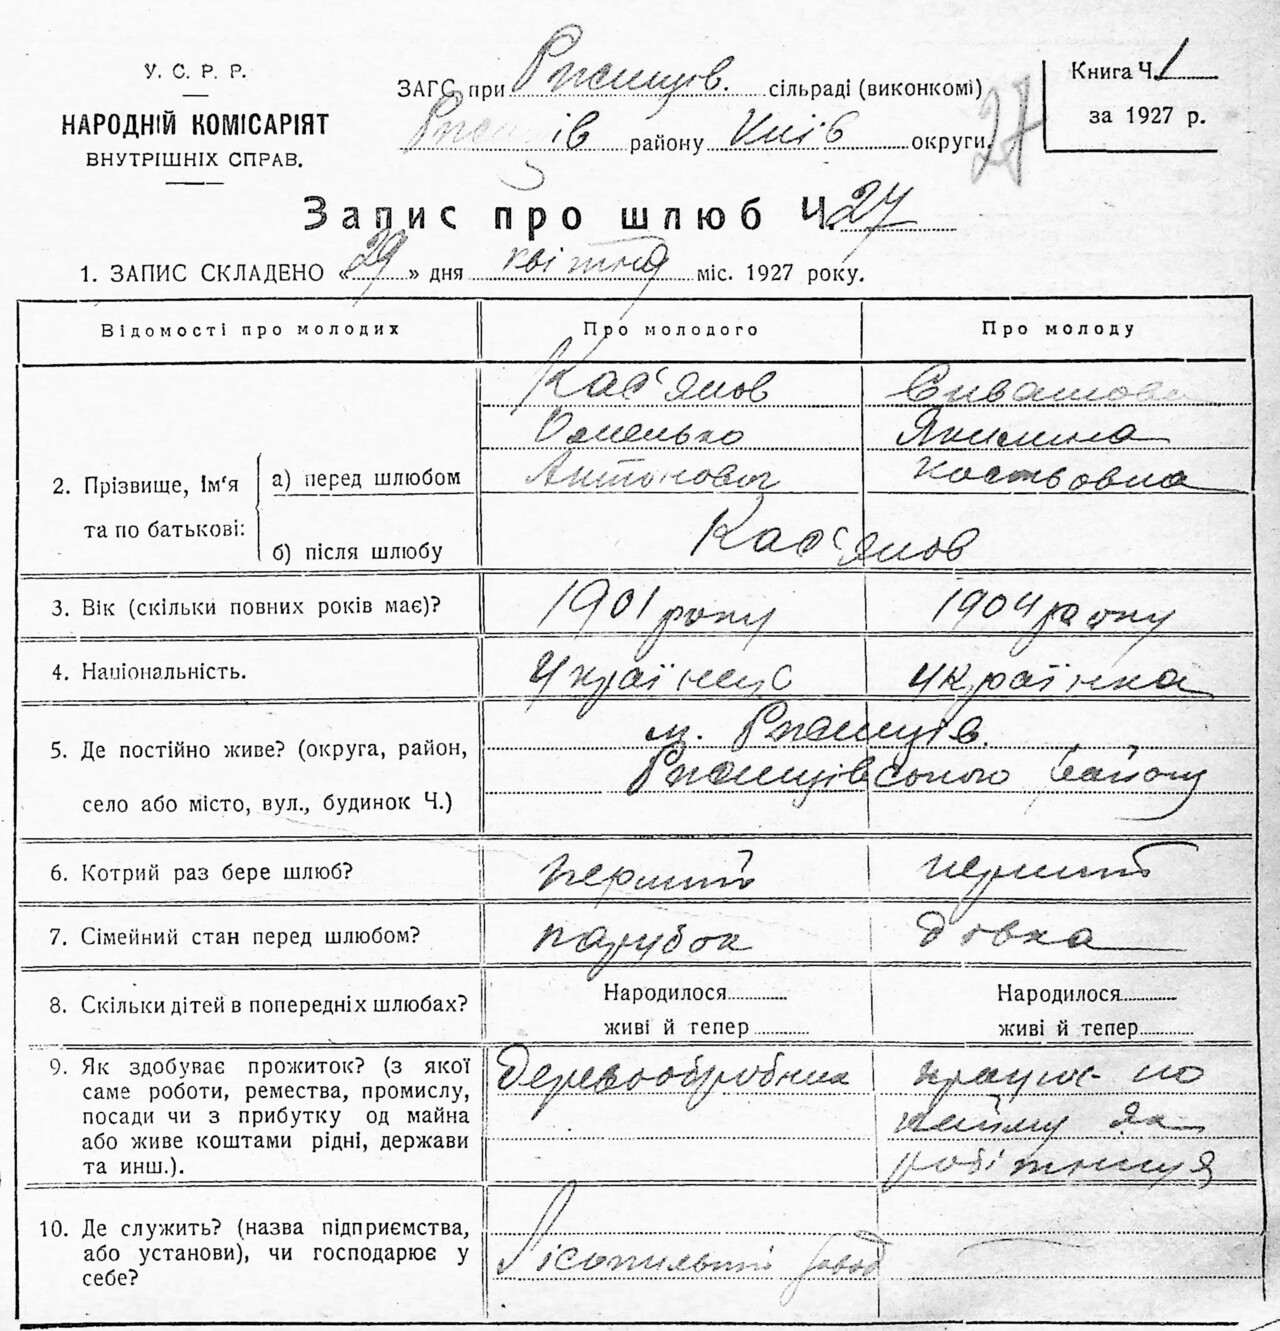 У. С. Р. Р.
НАРОДНІЙ КОМІСАРІЯТ
ВНУТРІШНІХ СПРАВ.
ЗАГС при Ржищів. сільраді (виконкомі)
Ржищів району Київ округи.
27
Книга Ч. 1
за 1927 р.
Запис про шлюб Ч. 27
1. ЗАПИС СКЛАДЕНО «29» дня квітня міс. 1927 року.
Відомості про молодих Про молодого Про молоду
2. Прізвище, Ім'я та по батькові:
а) перед шлюбом
Кас'янов
Омелько
Антонович
Сивашова
Якилина
Костьовна
б) після шлюбу
Кас'янов
3. Вік (скільки повних років має)? 1901 року 1904 року
4. Національність. Українець Українка
5. Де постійно живе? (округа, район,
село або місто, вул., будинок Ч.)
м. Ржищів.
Ржищівського району
6. Котрий раз бере шлюб? перший перший
7. Сімейний стан перед шлюбом? парубок дівка
8. Скільки дітей в попередніх шлюбах?
Народилося
живі й тепер
Народилося
живі й тепер
9. Як здобуває прожиток? (з якої
саме роботи, ремества, промислу,
посади чи з прибутку од майна
або живе коштами рідні, держави
та инш.).
Деревообробник
працює по
найму як
робітниця
10. Де служить? (назва підприємства,
або установи), чи господарює у
себе?
Лісопильний завод